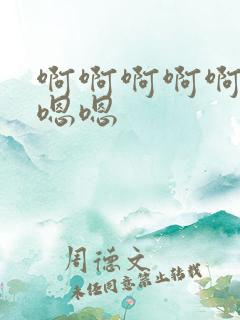 啊啊啊啊啊
嗯嗯
周德文
未经同意禁止转载